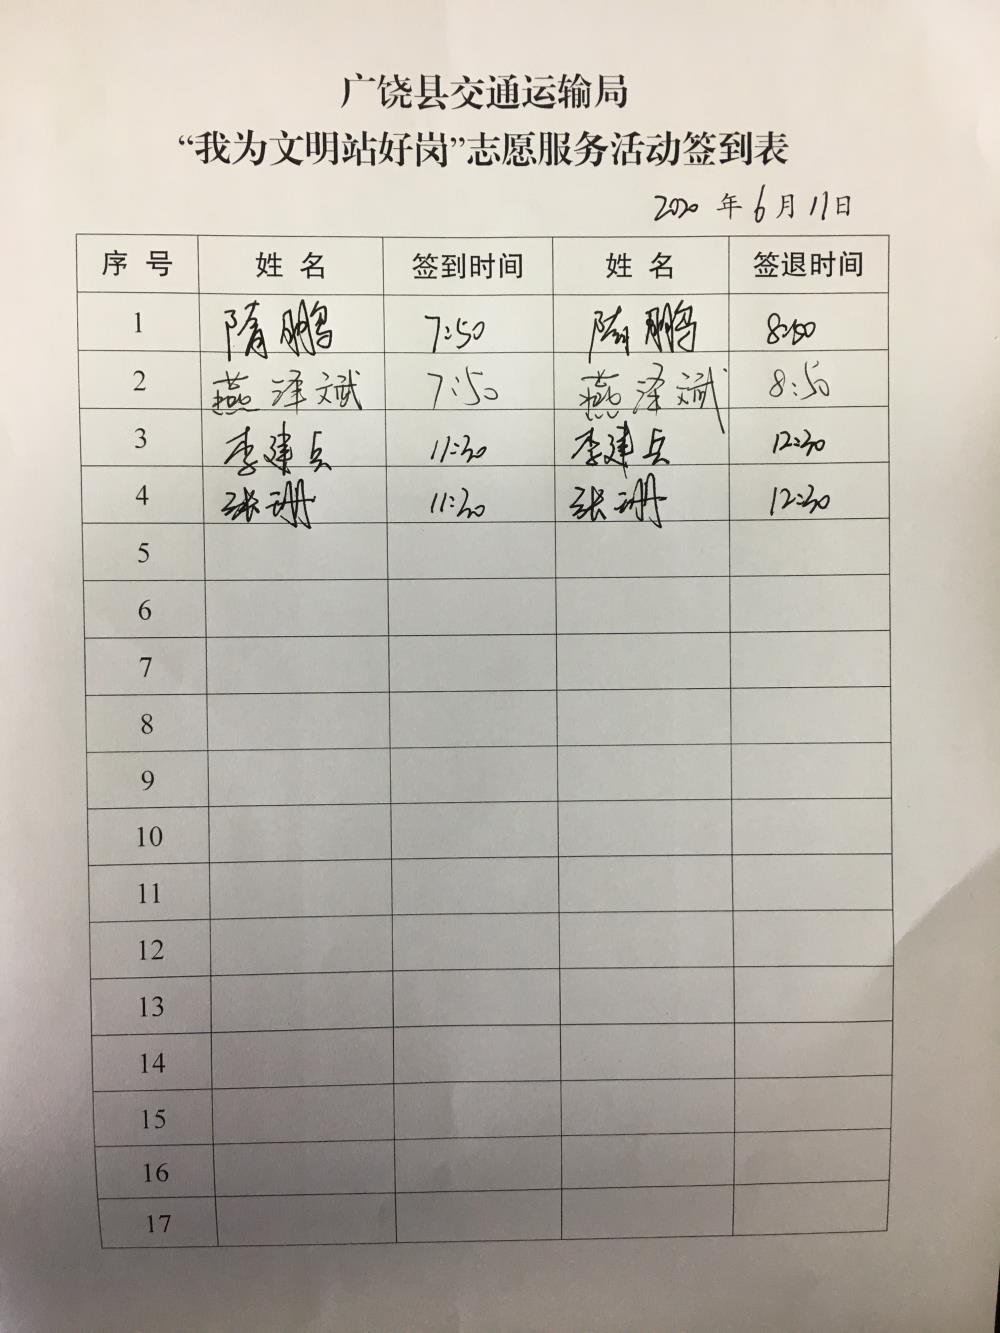 广饶县交通运输局
“我为文明站好岗”志愿服务活动签到表
2020 年 6 月 11 日
序 号 姓 名 签到时间 姓 名 签退时间
1 隋鹏 7:50 隋鹏 8:50
2 燕泽斌 7:50 燕泽斌 8:50
3 李建兵 11:30 李建兵 12:30
4 张珊 11:30 张珊 12:30
5
6
7
8
9
10
11
12
13
14
15
16
17